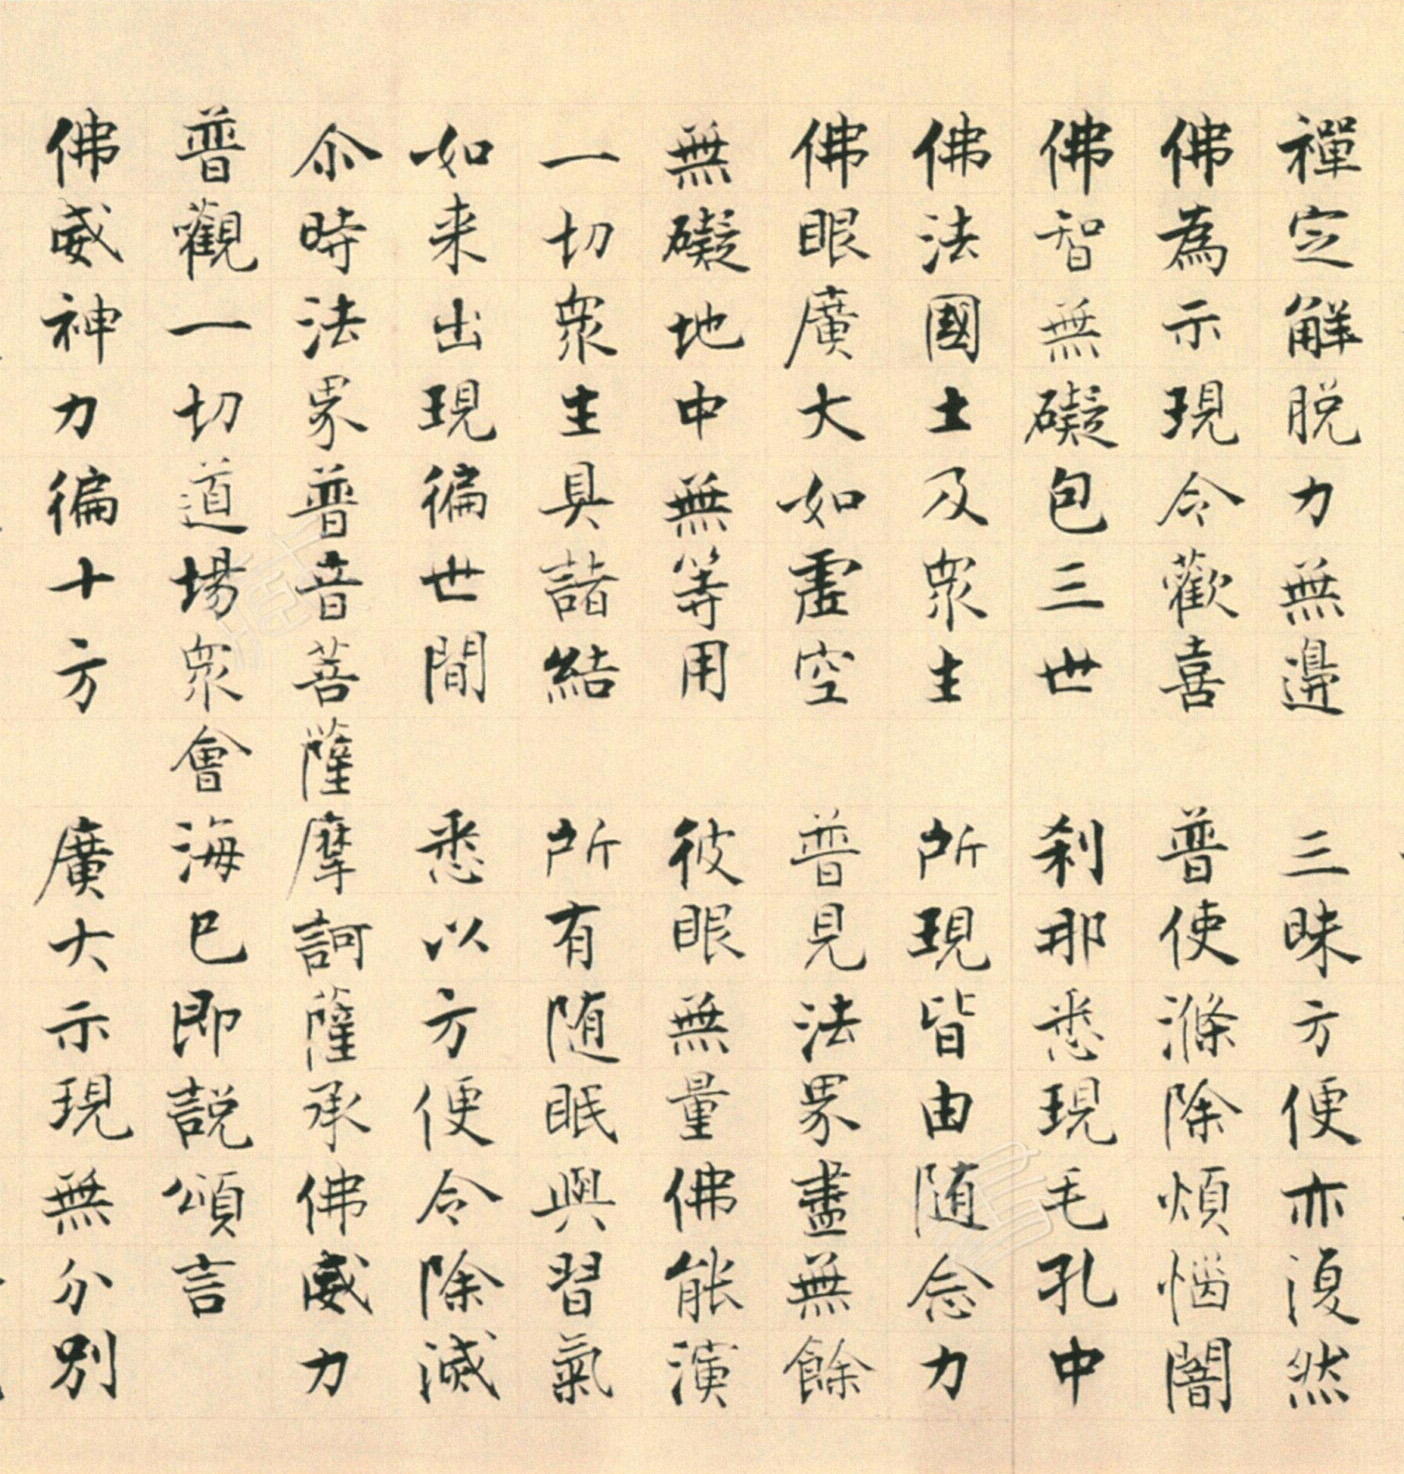 禪定解脱力無邊　三昧方便亦復然
佛為示現令歡喜　普使滌除煩惱闇
佛智無礙包三世　刹那悉現毛孔中
佛法國土及衆生　所現皆由随念力
佛眼廣大如虚空　普見法界盡無餘
無礙地中無等用　彼眼無量佛能演
一切衆生具諸結　所有随眠與習氣
如来出現徧世間　悉以方便令除滅
尒時法界普音菩薩摩訶薩承佛威力
普觀一切道場衆會海已即説頌言
佛威神力徧十方　廣大示現無分别